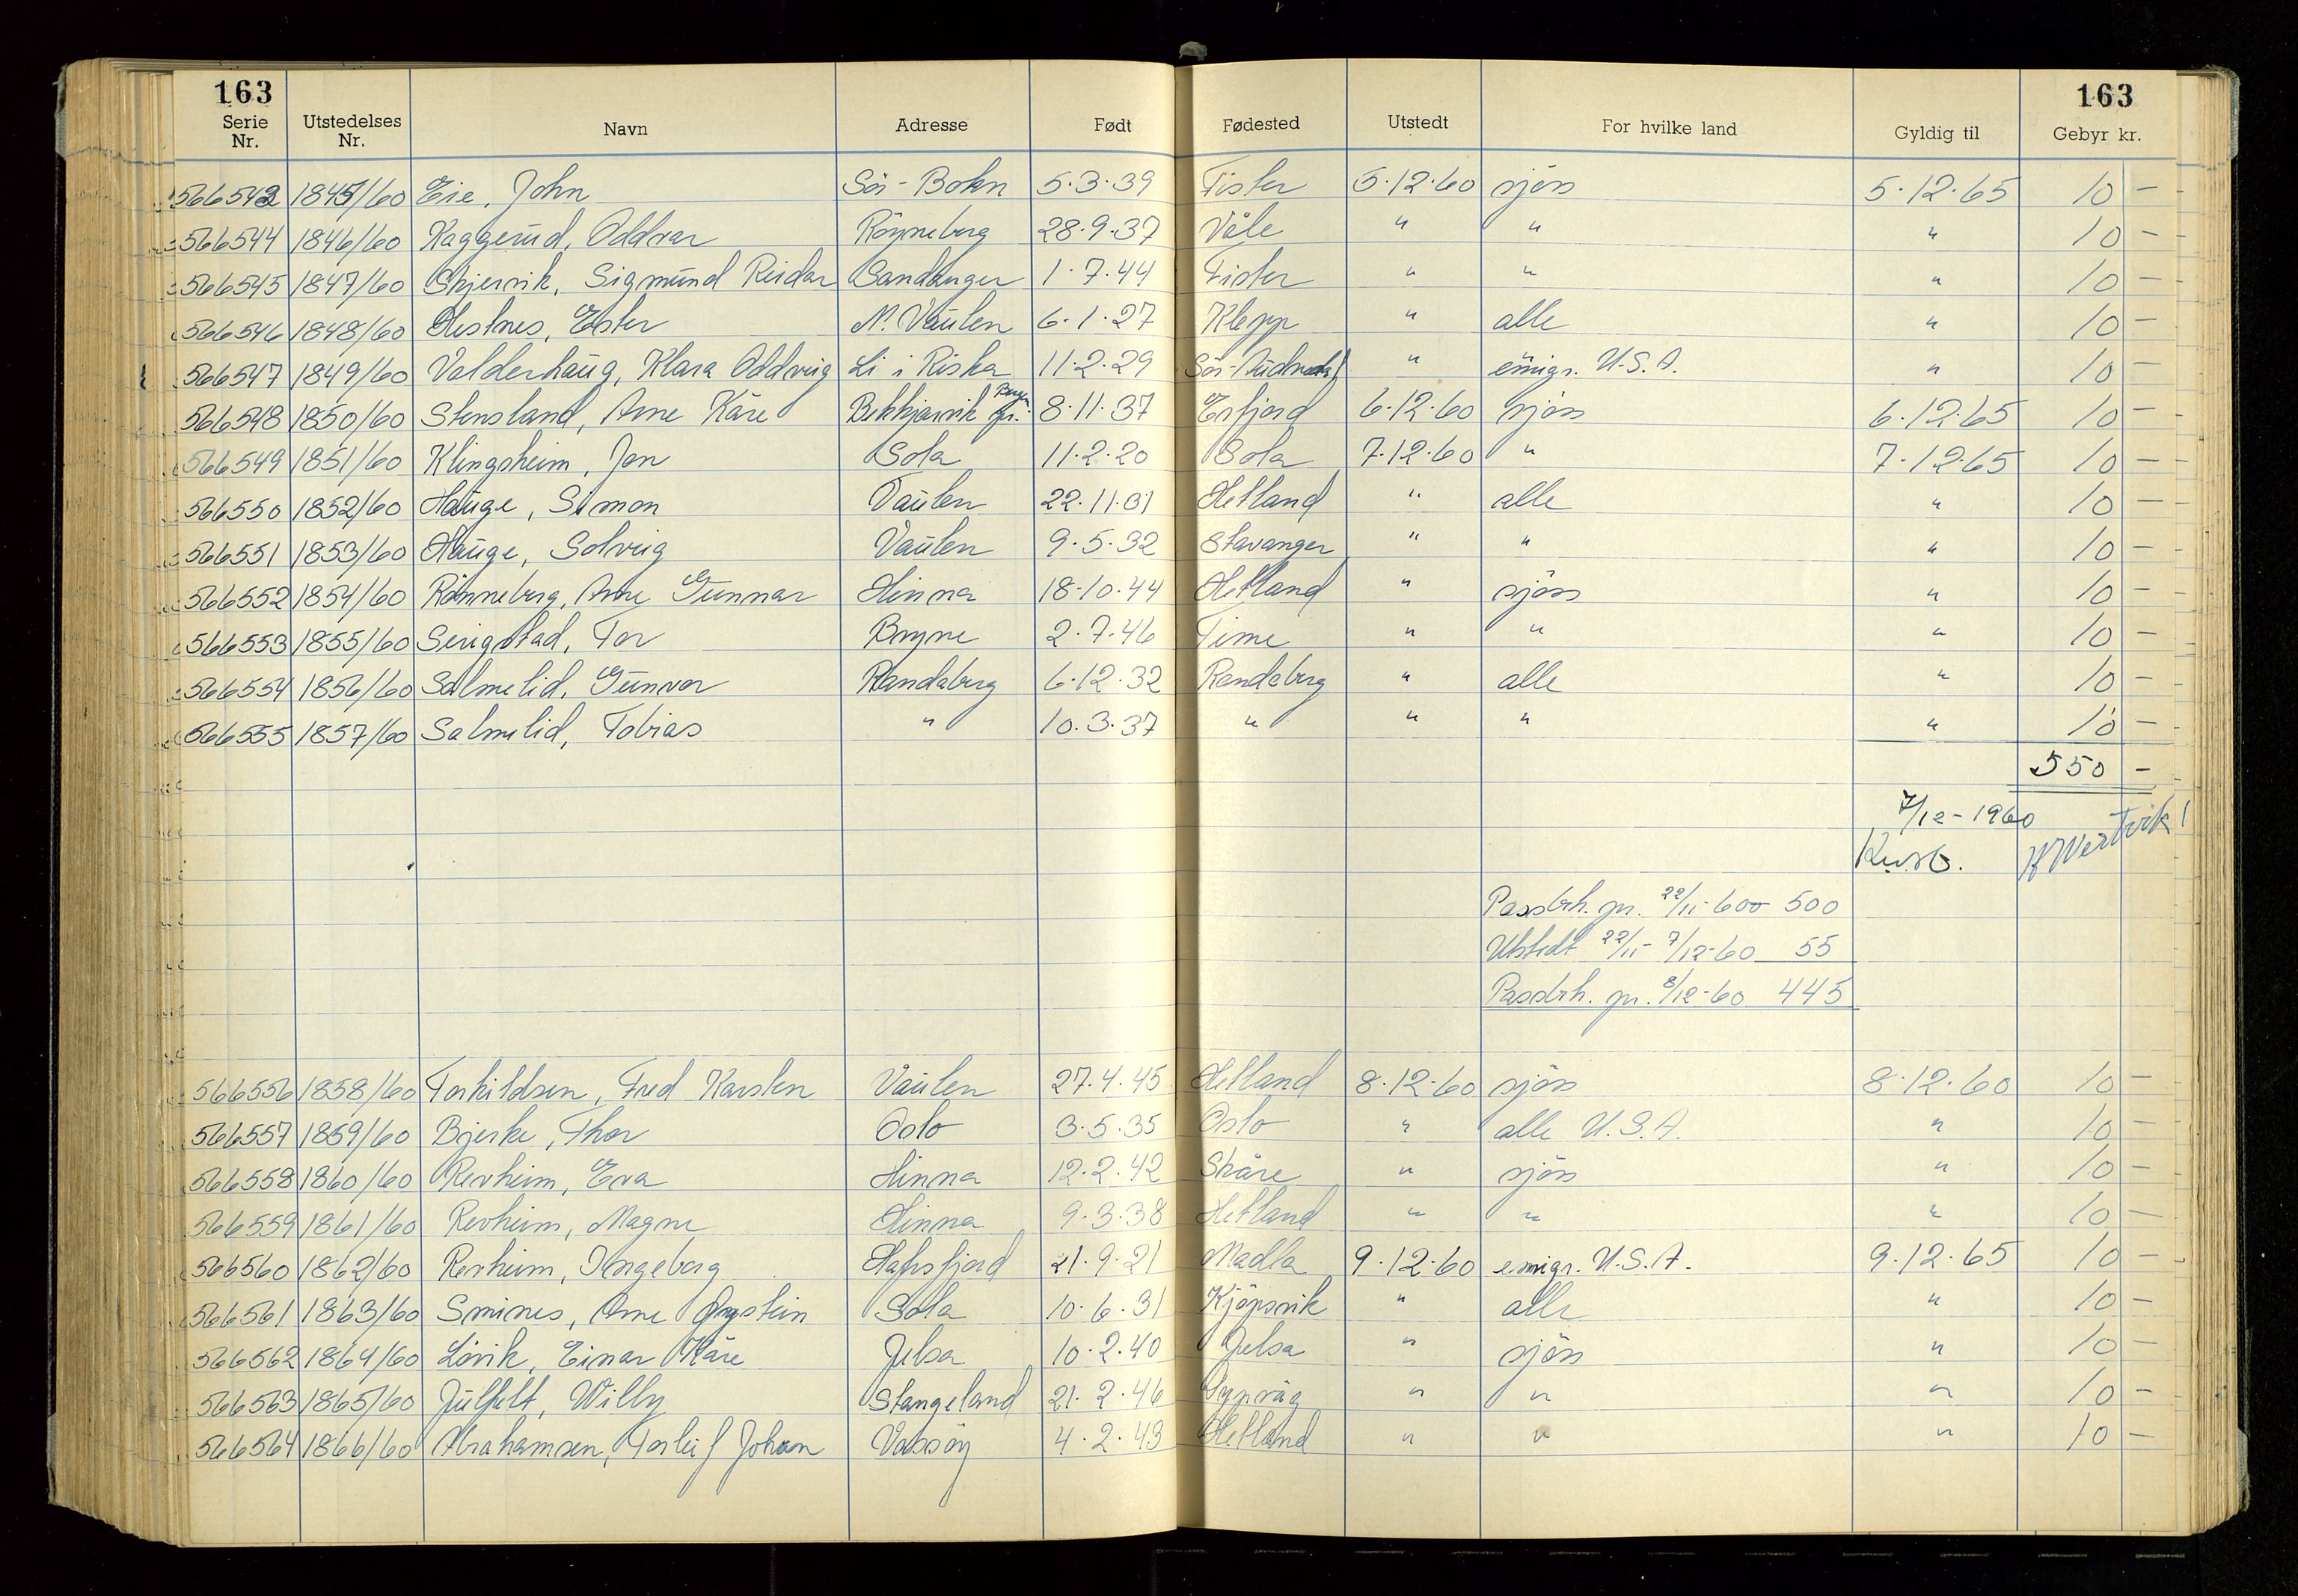 163 163
Serie Nr. Utstedelses Nr. Navn Adresse Født Fødested Utstedt For hvilke land Gyldig til Gebyr kr.
566543 1845/60 Eie, John Sör-Bokn 5.3.39 Fister 5.12.60 sjöss 5.12.65 10 —
566544 1846/60 Kaggerud, Oddvar Röyneberg 28.9.37 Våle " " " 10 —
566545 1847/60 Skjervik, Sigmund Reidar Sandanger 1.7.44 Fister " " " 10 —
566546 1848/60 Hestnes, Ester N. Vaulen 6.1.27 Klepp " alle " 10 —
566547 1849/60 Valderhaug, Klara Oddveig Li i Riska 11.2.29 Sör-Audnedal " emigr. U.S.A. " 10 —
566548 1850/60 Stensland, Arne Kåre Bekkjarvik pr. Bergen 8.11.37 Erfjord 6.12.60 sjöss 6.12.65 10 —
566549 1851/60 Klingsheim, Jon Sola 11.2.20 Sola 7.12.60 " 7.12.65 10 —
566550 1852/60 Hauge, Simon Vaulen 22.11.31 Hetland " alle " 10 —
566551 1853/60 Hauge, Solveig Vaulen 9.5.32 Stavanger " " " 10 —
566552 1854/60 Rönneberg, Arne Gunnar Hinna 18.10.44 Hetland " sjöss " 10 —
566553 1855/60 Serigstad, Tor Bryne 2.7.46 Time " " " 10 —
566554 1856/60 Salmelid, Gunvor Randaberg 6.12.32 Randaberg " alle " 10 —
566555 1857/60 Salmelid, Tobias " 10.3.37 " " " " 10 —
550 —
7/12-1960
Passbh. pr. 22/11-60 500
Utstedt 22/11- 7/12-60 55
Passbh. pr. 8/12-60 445
566556 1858/60 Torkildsen, Fred Karsten Vaulen 27.4.45 Hetland 8.12.60 sjöss 8.12.60 10 —
566557 1859/60 Bjerke, Thor Oslo 3.5.35 Oslo " alle U.S.A. " 10 —
566558 1860/60 Revheim, Eva Hinna 12.2.42 Skåre " sjöss " 10 —
566559 1861/60 Revheim, Magne Hinna 9.3.38 Hetland " " " 10 —
566560 1862/60 Revheim, Ingeborg Hafrsfjord 21.9.21 Madla 9.12.60 emigr. U.S.A. 9.12.65 10 —
566561 1863/60 Smines, Arne Öystein Sola 10.6.31 Kjöpsvik " alle " 10 —
566562 1864/60 Lövik, Einar Kåre Jelsa 10.2.40 Jelsa " sjöss " 10 —
566563 1865/60 Willy Stangeland 21.2.46 Dypvåg " " " 10 —
566564 1866/60 Abrahamsen, Torleif Johan Vassöy 4.2.43 Hetland " " " 10 —